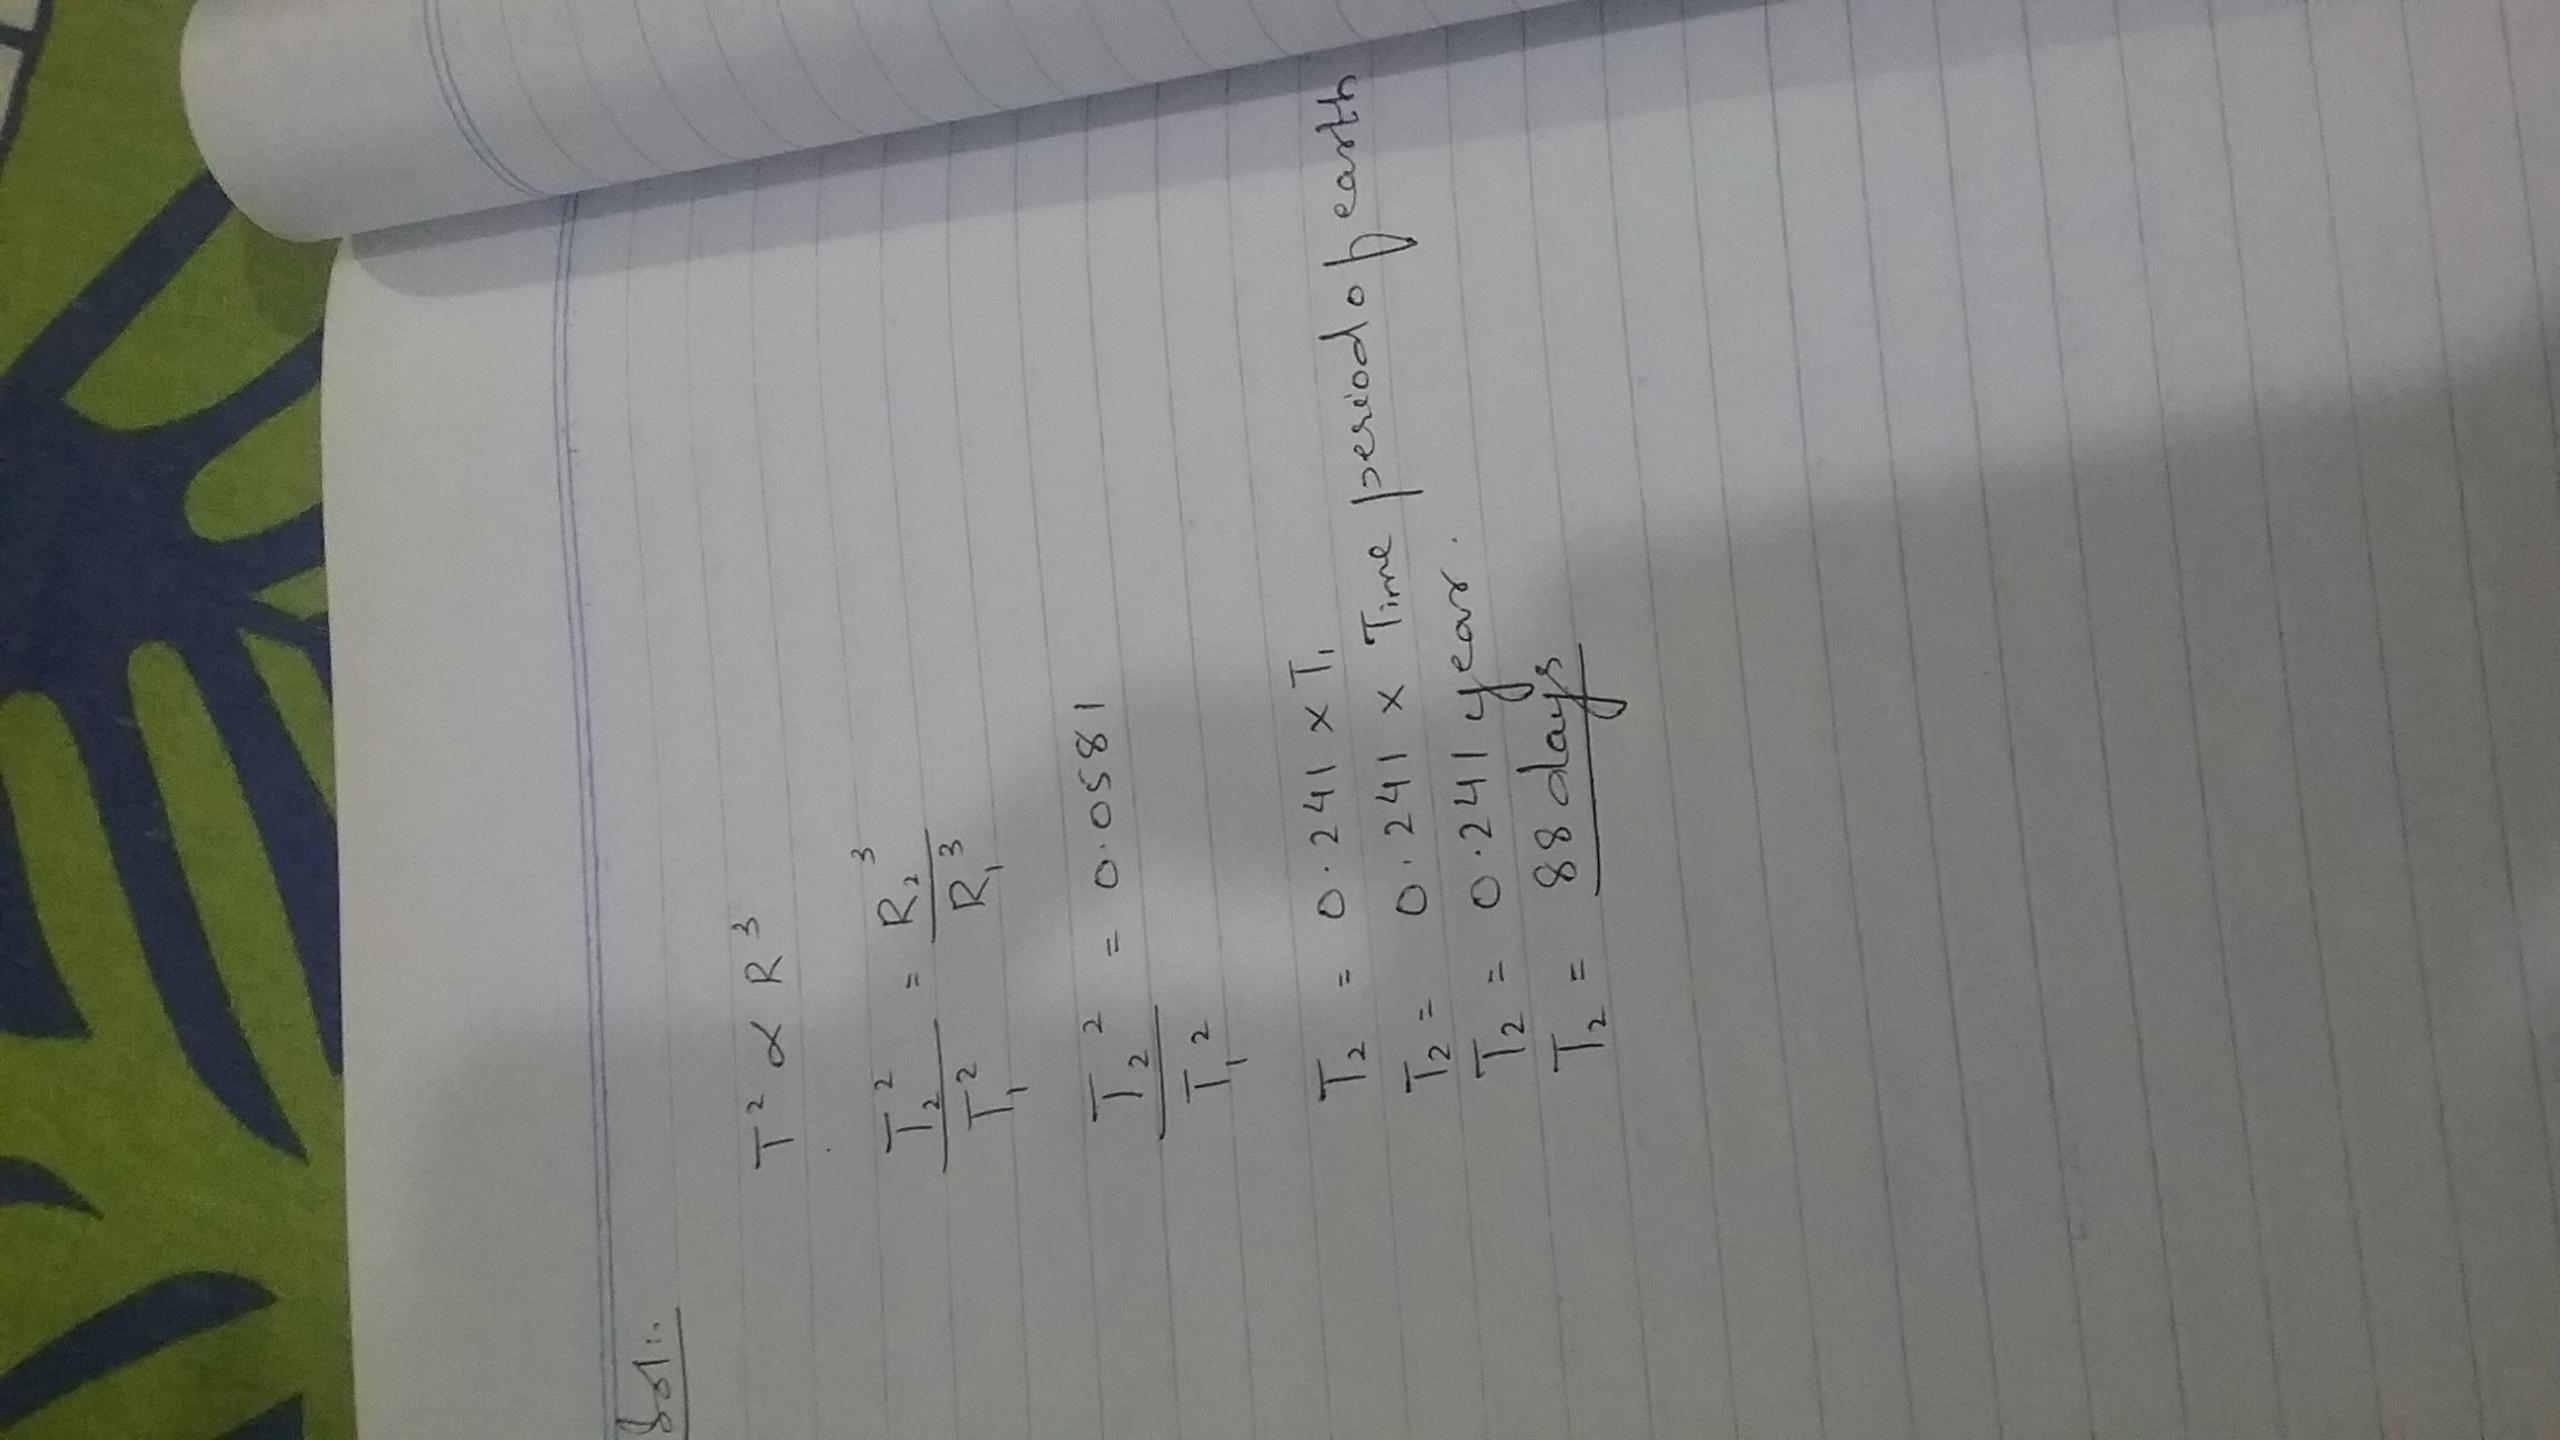 Sol:.
T² ∝ R³
T₂²/T₁² = R₂³/R₁³
T₂²/T₁² = 0.0581
T₂ = 0.241 x T₁
T₂ = 0.241 x Time period of earth
T₂ = 0.241 year.
T₂ = 88 days